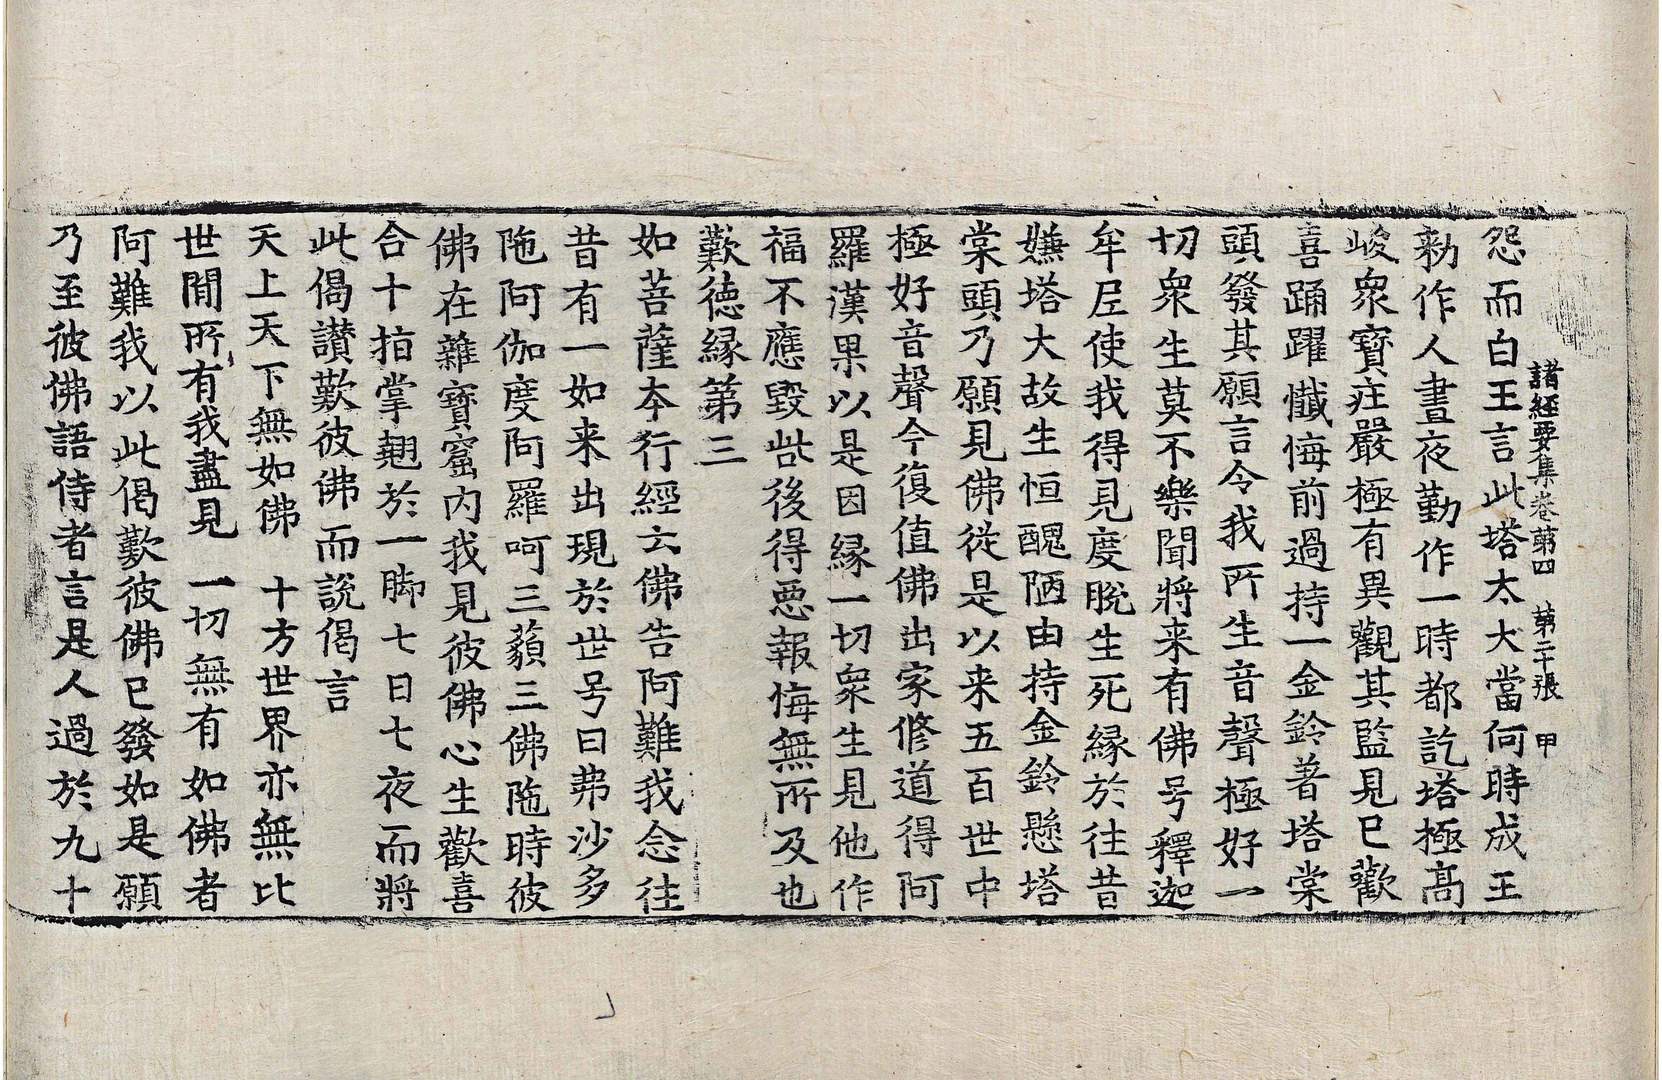 諸經要集卷第四　第二十張　甲
怨而白王言此塔太大當何時成王
勑作人晝夜勤作一時都訖塔極高
峻衆寶莊嚴極有異觀其監見已歡
喜踊躍懺悔前過持一金鈴著塔棠
頭發其願言令我所生音聲極好一
切衆生莫不樂聞將来有佛号釋迦
牟尼使我得見度脫生死緣於往昔
嫌塔大故生恒醜陋由持金鈴懸塔
棠頭乃願見佛從是以来五百世中
極好音聲今復值佛出家修道得阿
羅漢果以是因緣一切衆生見他作
福不應毀呰後得惡報悔無所及也
歎德緣第三
如菩薩本行經云佛告阿難我念往
昔有一如来出現於世号曰弗沙多
陁阿伽度阿羅呵三藐三佛陁時彼
佛在雜寶窟內我見彼佛心生歡喜
合十指掌翹於一脚七日七夜而將
此偈讃歎彼佛而說偈言
天上天下無如佛　十方世界亦無比
世閒所有我盡見　一切無有如佛者
阿難我以此偈歎彼佛已發如是願
乃至彼佛語侍者言是人過於九十